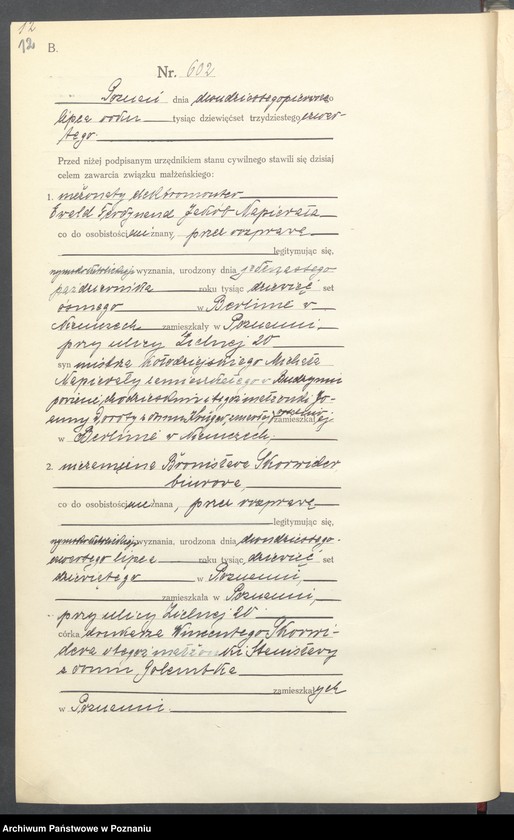 12
12
B.
Nr. 602
Poznań dnia dwudziestego pierwszego
lipca roku tysiąc dziewięćset trzydziestego czwar-
tego.
Przed niżej podpisanym urzędnikiem stanu cywilnego stawili się dzisiaj
celem zawarcia związku małżeńskiego:
1. nieżonaty elektromonter
Ewald Ferdynand Jakób Napierała
co do osobistości nieznany, przez rozprawę
legitymując się,
rzymsko katolickiego wyznania, urodzony dnia jedenastego
października roku tysiąc dziewięć set
ósmego w Berlinie w
Niemczech zamieszkały w Poznaniu,
przy ulicy Zielnej 20
syn mistrza kołodziejskiego Michała
Napierały zamieszkałego w Budzyniu
powiecie chodzieskim i tegoż małżonki Jo-
anny Doroty z domu Krüger, zmarłej, zamieszkałej
w Berlinie w Niemczech,
2. niezamężna Bronisława Skorwider
biurowa,
co do osobistości nieznana, przez rozprawę
legitymując się,
rzymsko katolickiego wyznania, urodzona dnia dwudziestego
czwartego lipca roku tysiąc dziewięć set
dziewiątego w Poznaniu,
zamieszkała w Poznaniu,
przy ulicy Zielnej 20
córka drukarza Wincentego Skorwi-
dera i tegoż małżonki Stanisławy
z domu Golembka
zamieszkałych
w Poznaniu.
Archiwum Państwowe w Poznaniu